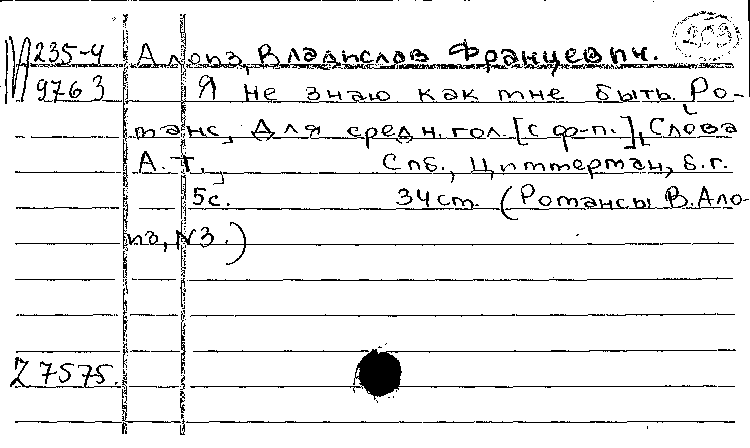 М 235-4 Алоиз, Владислав Францевич. 209
9763 Я не знаю как мне быть. Ро-
манс, для средн. гол. [с ф-п.], Слова
А. Т., Спб., Циммерман, б. г.
5с. 34 cm. (Романсы В. Ало-
иза, N3.)
Z 7575.